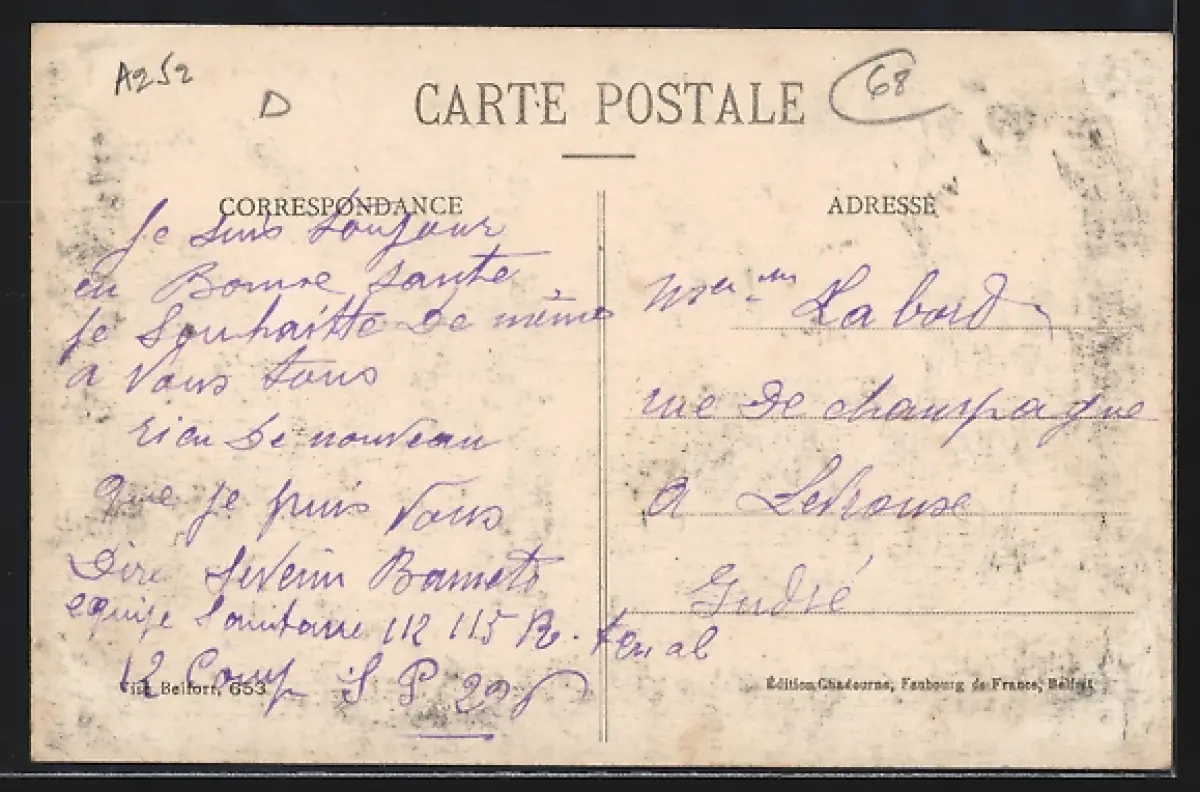 A252
D
CARTE POSTALE
68
CORRESPONDANCE
Je suis toujour
en Bonne sante
je souhaitte de même
a vous tous
rien de nouveau
que je puis vous
dire Severin
equipe sanitaire 112 115 R. teral
12 Comp S P
Belfort, 653
ADRESSE
Labord
rue de champagne
a Levrouse
Indre
Édition Chadourne, Faubourg de France, Belfort